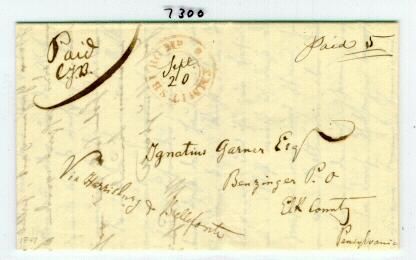 7300
Paid
Paid 5
EMMITSBURG
SEP
Sept.
20
Ignatius Garner Esq
Benzinger P. O
Elk County
Pensylvania
Via Harrisburg & Bellefonte